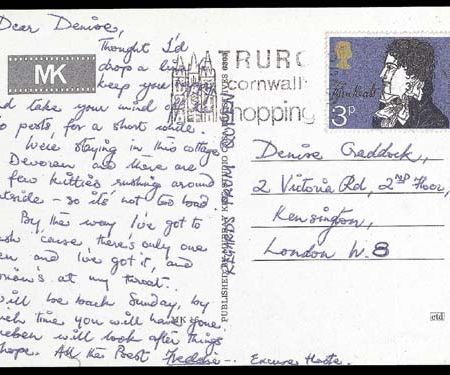 Dear Denise,
Thought I'd
drop a line
keep you happy
and take your mind off
posts, for a short while.
Were staying in this cottage
Devoran and there are
few kitties rushing around
outside - so it's not too bad
By the way, I've got to
'cause, there's only one
and I've got it, and
at my throat.
will be back Sunday, by
time you will have gone.
will look after things
hope. All the Best Freddie -. Excuse Haste.
MK
TRURO
cornwall
shopping
John Keats
3p
PUBLISHED BY MURRAY KING
REGARDS FROM QUEENIE
MK
Denise Craddock,
2 Victoria Rd, 2ND Floor,
Kensington,
London W.8
ctd